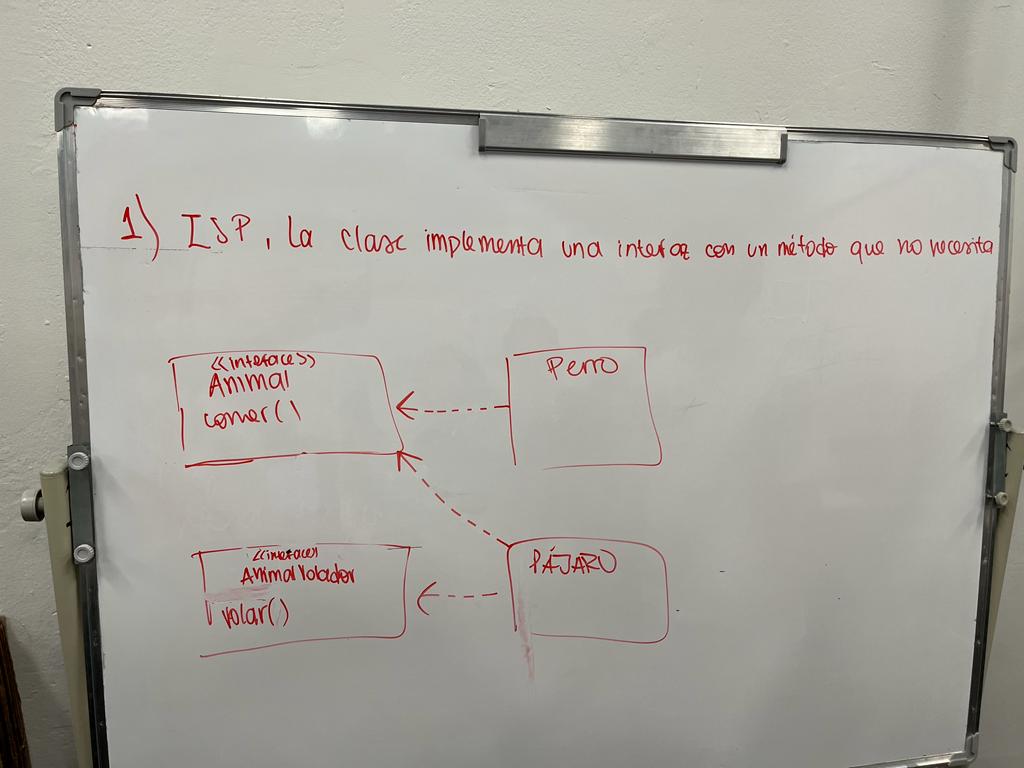 1) ISP, La clase implementa una interfaz con un método que no necesita
<<interface>>
Animal
comer()
Perro
<<interface>>
AnimalVolador
volar()
PÁJARO